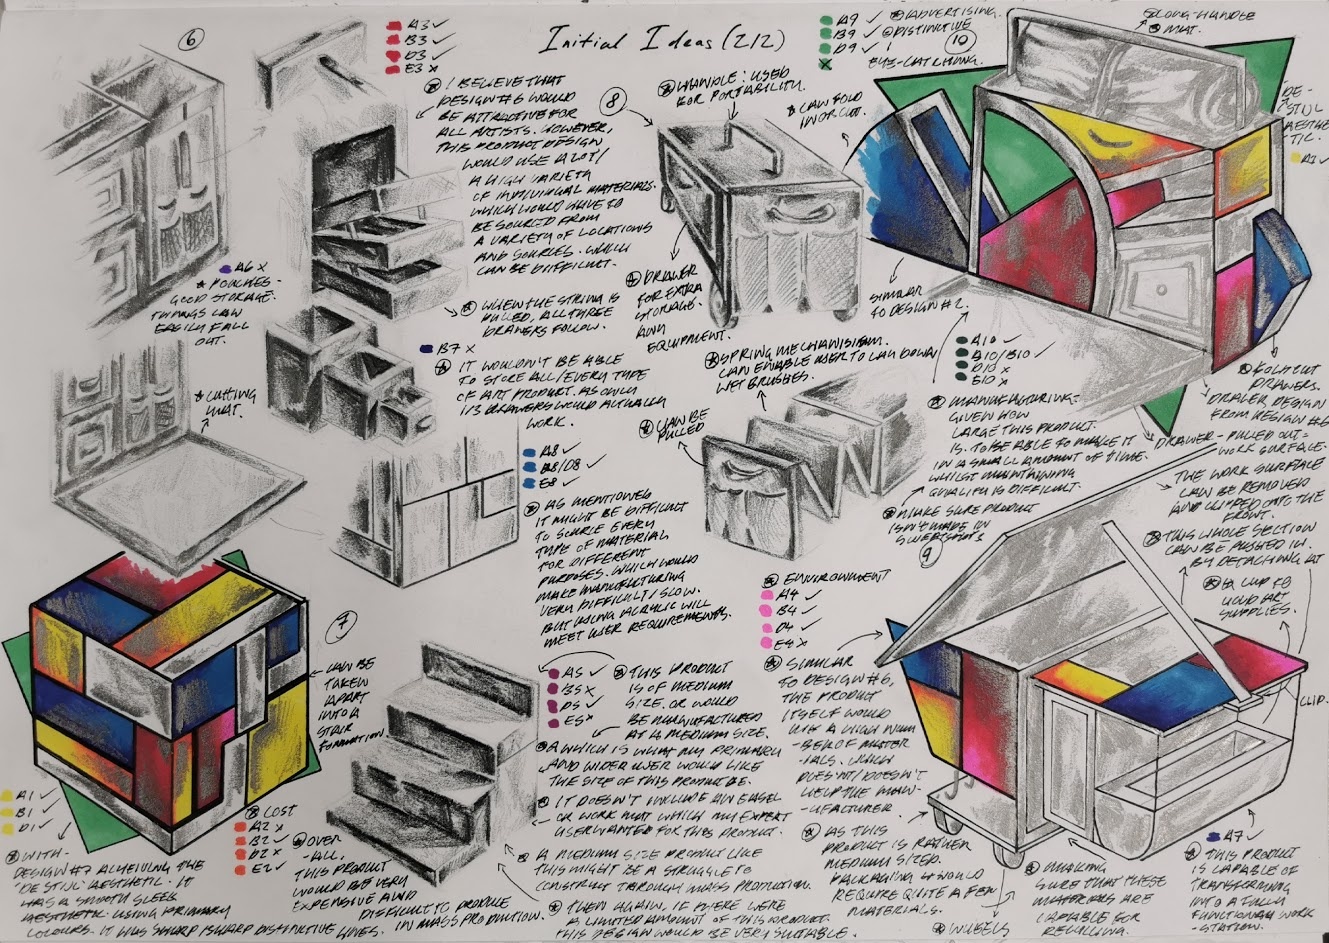 Initial Ideas (2/2)
6
A3 ✓
B3 ✓
D3 ✓
E3 x
I BELIEVE THAT
DESIGN #6 WOULD
BE ATTRACTIVE FOR
ALL ARTISTS. HOWEVER,
THIS PRODUCT DESIGN
WOULD USE A LOT/
A HIGH VARIETY
OF INDIVIDUAL MATERIALS.
WHICH WOULD HAVE TO
BE SOURCED FROM
A VARIETY OF LOCATIONS
AND SOURCES. WHICH
CAN BE DIFFICULT.
WHEN THE STRING IS
PULLED, ALL THREE
DRAWERS FOLLOW.
A6 x
POUCHES -
GOOD STORAGE.
THINGS CAN
EASILY FALL
OUT.
CUTTING
MAT.
B7 x
IT WOULDN'T BE ABLE
TO STORE ALL/EVERY TYPE
OF ART PRODUCT. AS ONLY
IT'S DRAWERS WOULD ACTUALLY
WORK.
8
HANDLE: USED
FOR PORTABILITY.
DRAWER
FOR EXTRA
STORAGE.
AND
EQUIPMENT.
SPRING MECHANISISM.
CAN ENABLE USER TO LAY DOWN
WET BRUSHES.
CAN BE
PULLED
A8 ✓
B8/D8 ✓
E8 ✓
AS MENTIONED
IT MIGHT BE DIFFICULT
TO SOURCE EVERY
TYPE OF MATERIAL
FOR DIFFERENT
PURPOSES. WHICH WOULD
MAKE MANUFACTURING
VERY DIFFICULT/SLOW.
BUT USING ACRYLIC WILL
MEET USER REQUIREMENTS.
A9 ✓
B9 ✓
D9 ✓
ADVERTISING.
DISTINCTIVE
EYE-CATCHING.
10
LONG-HANDLE
MAT.
CAN FOLD
IN OR OUT.
DE-
STIJL
AESTHE
TIC.
A1 ✓
SIMILAR
TO DESIGN #2.
A10 ✓
B10/B10 ✓
D10 x
E10 x
MANUFACTURING:
GIVEN HOW
LARGE THIS PRODUCT
IS. TO BE ABLE TO MAKE IT
IN A SMALL AMOUNT OF TIME.
WHILST MAINTAINING
QUALITY IS DIFFICULT.
MAKE SURE PRODUCT
ISN'T MADE IN
SWEATSHOPS
FOLD OUT
DRAWERS.
DRAWER DESIGN
FROM DESIGN #6
DRAWER - PULLED OUT =
WORK SURFACE.
THE WORK SURFACE
CAN BE REMOVED
AND CLIPPED ONTO THE
FRONT.
THIS WHOLE SECTION
CAN BE PUSHED IN.
BY DETACHING IT
CLIP TO
HOLD ART
SUPPLIES.
CLIP.
9
ENVIRONMENT
A4 ✓
B4 ✓
D4 ✓
E4 x
SIMILAR
TO DESIGN #6,
THE PRODUCT
ITSELF WOULD
USE A HIGH NUM
-BER OF MATER
-IALS. WHICH
DOESN'T/DOESN'T
HELP THE MAN-
-UFACTURER.
AS THIS
PRODUCT IS RATHER
MEDIUM SIZED.
PACKAGING WOULD
REQUIRE QUITE A FEW
MATERIALS.
WHEELS
MAKING
SURE THAT THESE
MATERIALS ARE
CAPABLE FOR
RECYCLING.
A7 ✓
THIS PRODUCT
IS CAPABLE OF
TRANSFORMING
INTO A FULLY
FUNCTIONAL WORK
-STATION.
7
CAN BE
TAKEN
APART
INTO A
STAIR
FORMATION.
A1 ✓
B1 ✓
D1 ✓
WITH -
DESIGN #7 ACHIEVING THE
'DE STIJL' AESTHETIC. IT
HAS A SMOOTH SLEEK
AESTHETIC. USING PRIMARY
COLOURS. IT HAS SHARP/SHARP DISTINCTIVE LINES.
COST
A2 x
B2 ✓
D2 x
E2 ✓
OVER
-ALL,
THIS PRODUCT
WOULD BE VERY
EXPENSIVE AND
DIFFICULT TO PRODUCE
IN MASS PRODUCTION.
A5 ✓
B5 x
D5 ✓
E5 x
THIS PRODUCT
IS OF MEDIUM
SIZE. OR WOULD
BE MANUFACTURED
AT A MEDIUM SIZE.
WHICH IS WHAT MY PRIMARY
AND WIDER USER WOULD LIKE
THE SIZE OF THIS PRODUCT BE.
IT DOESN'T INCLUDE AN EASEL
OR WORK MAT WHICH MY EXPERT
USER WANTED FOR THIS PRODUCT.
A MEDIUM SIZE PRODUCT LIKE
THIS MIGHT BE A STRUGGLE TO
CONSTRUCT THROUGH MASS PRODUCTION.
THEN AGAIN, IF THERE WERE
A LIMITED AMOUNT OF THIS PRODUCT.
THIS DESIGN WOULD BE VERY SUITABLE.